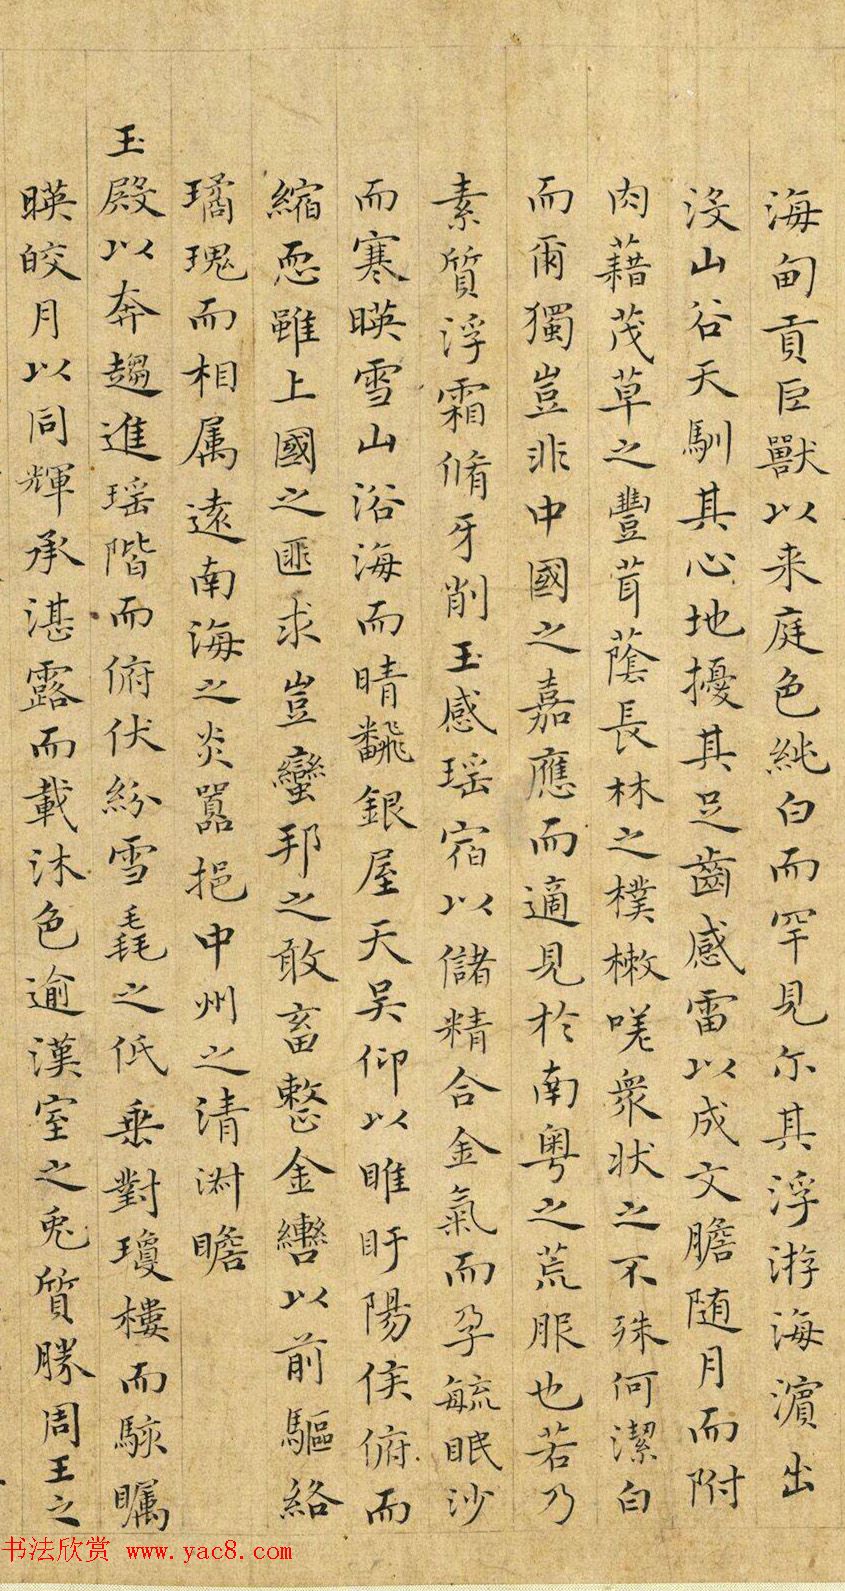 海甸貢巨獸以来庭色純白而罕見尔其浮游海濵出
沒山谷天馴其心地擾其足齒感雷以成文膽随月而附
肉藉茂草之豐茸蔭長林之樸樕嗟衆状之不殊何潔白
而爾獨豈非中國之嘉應而適見於南粤之荒服也若乃
素質浮霜脩牙削玉感瑶宿以儲精合金氣而孕毓眠沙
而寒暎雪山浴海而晴飜銀屋天吴仰以睢盱陽侯俯而
縮恧雖上國之匪求豈蠻邦之敢畜整金轡以前驅絡
璚瑰而相属遠南海之炎嚣挹中州之清淑瞻
玉殿以奔趨進瑶階而俯伏紛雪毳之低垂對瓊樓而駭矚
暎皎月以同輝承湛露而載沐色逾漢室之兎質勝周王之
书法欣赏 www.yac8.com